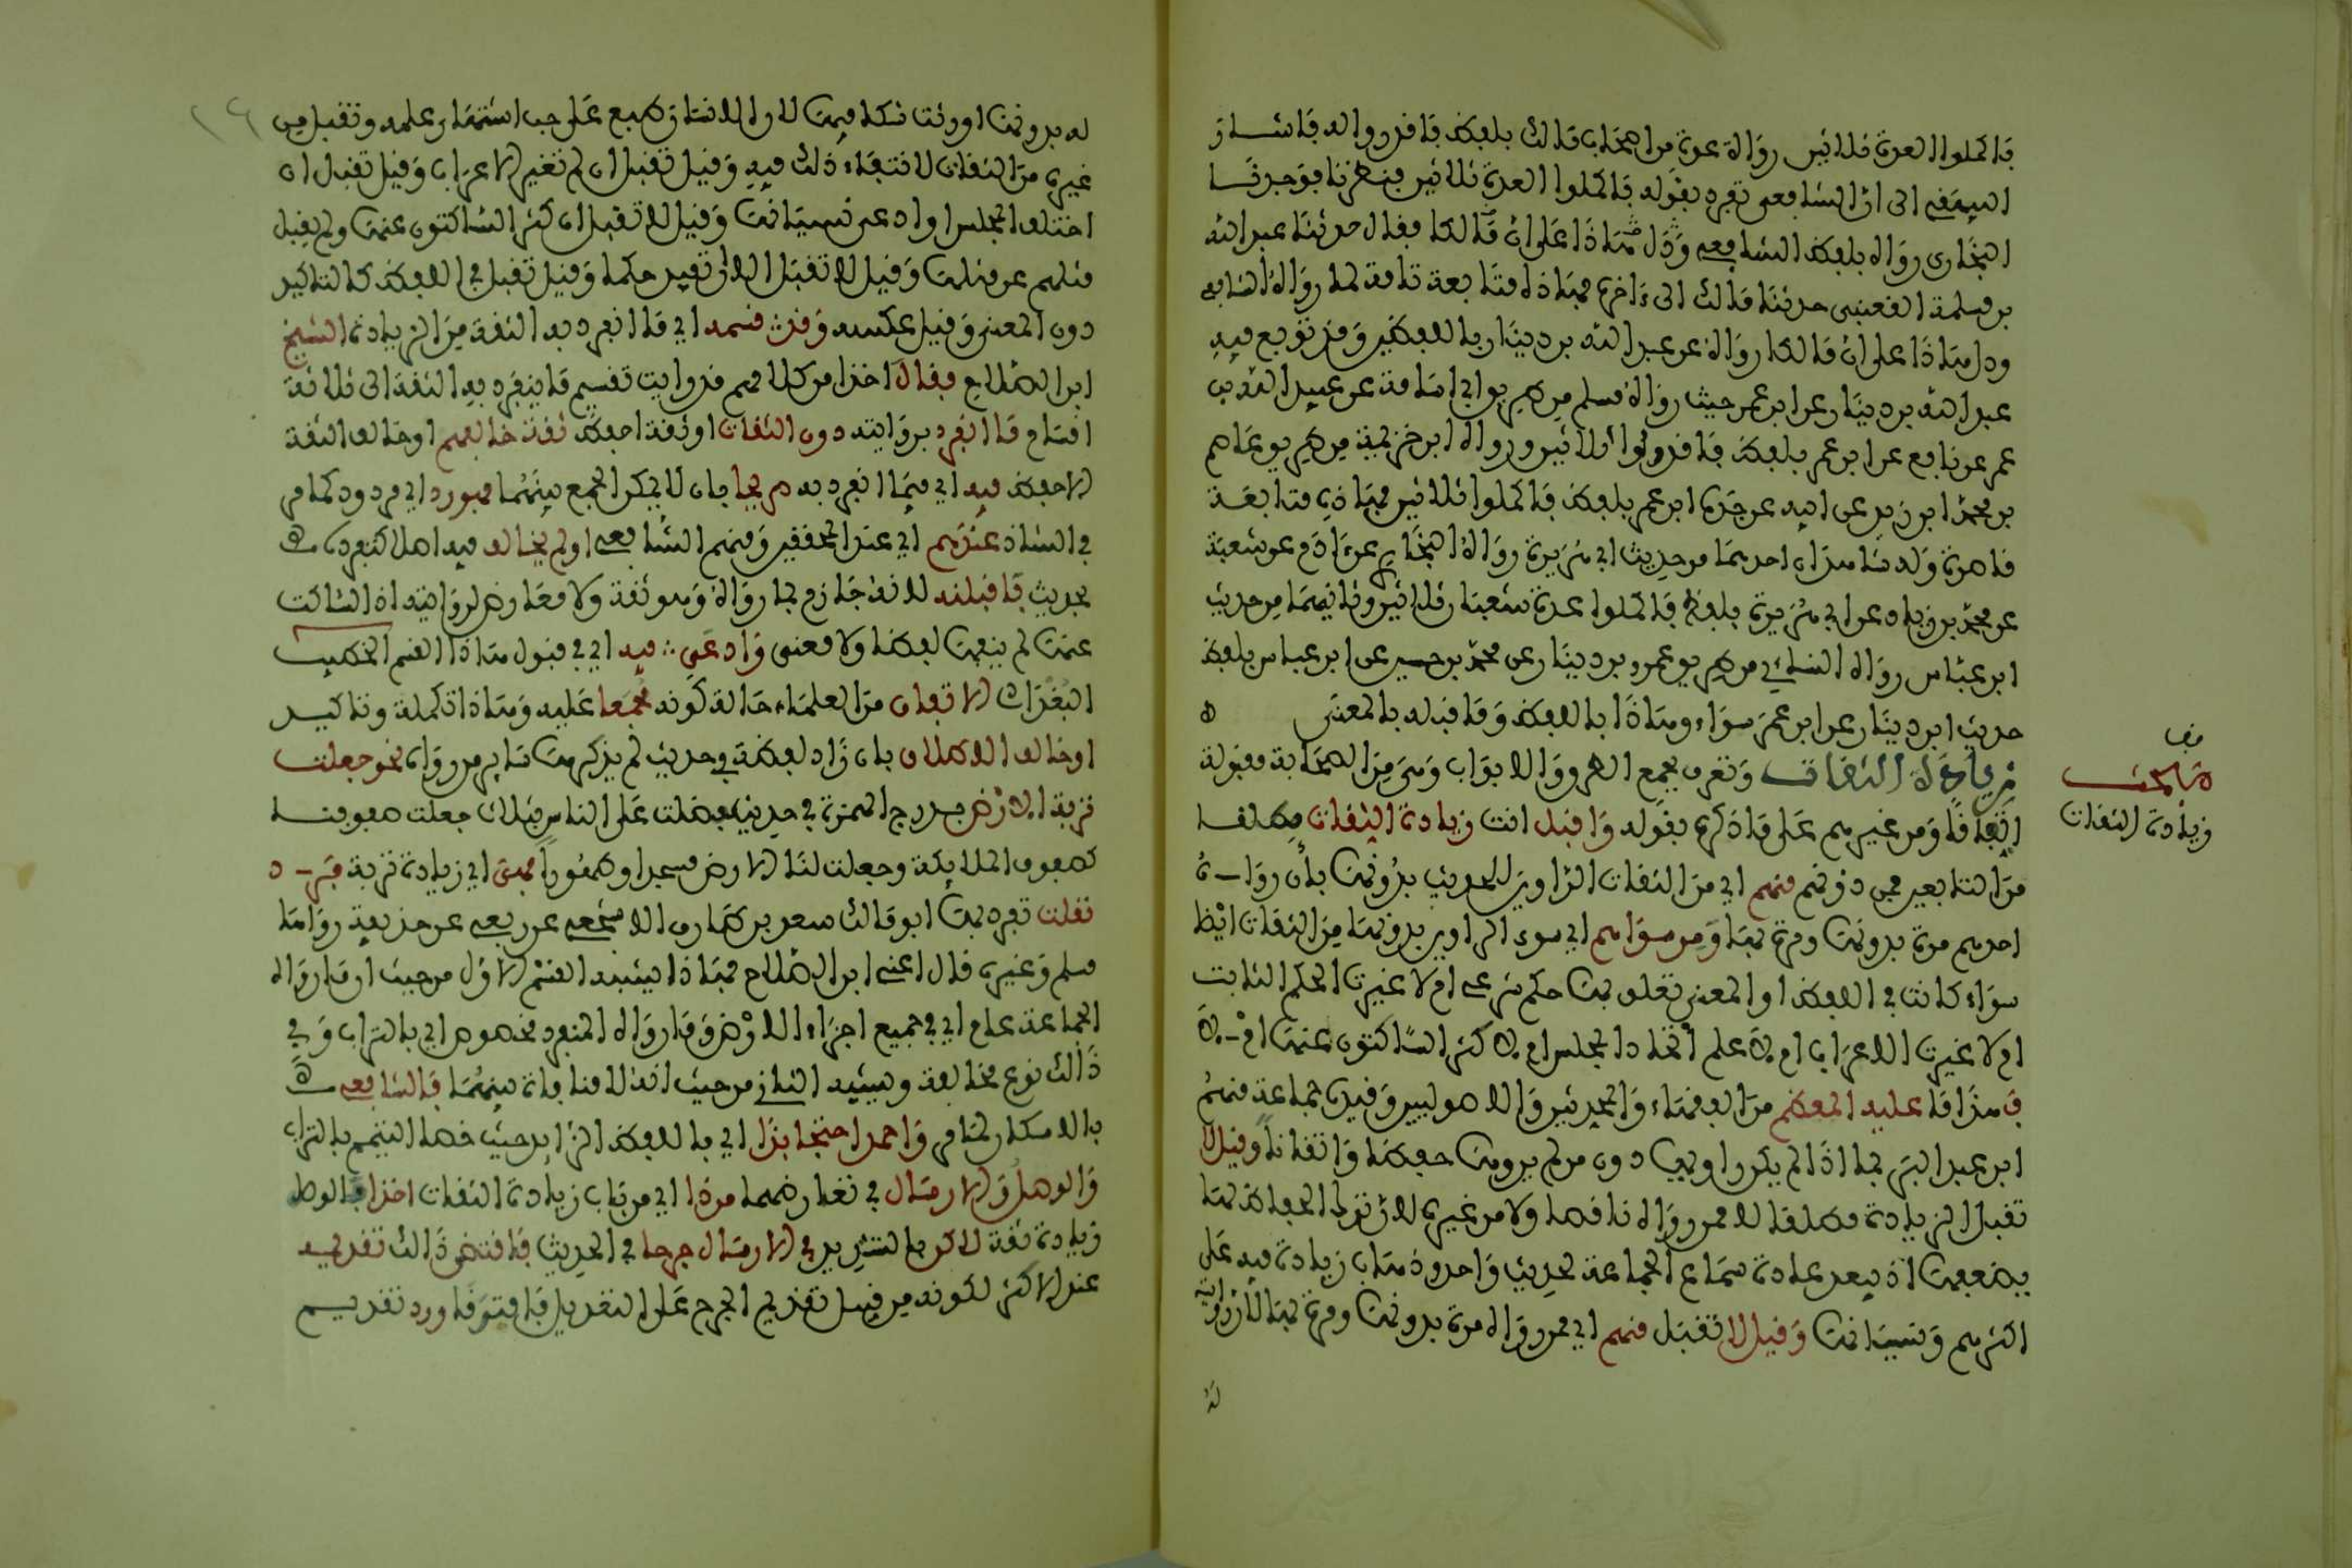 فاكملوا العدة ثلاثين رواه عدة من اصحاب مالك بلفظ فاقدروا له فاشار
البيهقي الى ان الشافعي تفرد بقوله فاكملوا العدة ثلاثين فنظرنا فوجدنا
البخاري رواه بلفظ الشافعي فقال حدثنا عبد الله
بن مسلمة القعنبي حدثنا مالك الى ءاخره فهذه متابعة تامة لما رواه الشافعي
ودل هذا على ان مالكا رواه عن عبد الله بن دينار باللفظين وقد توبع فيه
عبد الله بن دينار عن ابن عمر حيث رواه مسلم من طريق ابي اسامة عن عبيد الله بن
عمر عن نافع عن ابن عمر بلفظ فاقدروا ثلاثين ورواه ابن خزيمة من طريق عاصم
بن محمد ابن زيد عن ابيه عن جده ابن عمر بلفظ فاكملوا ثلاثين فهذه متابعة
قاصرة وله شاهدان احدهما من حديث ابي هريرة رواه البخاري عن ءادم عن شعبة
عن محمد بن زياد عن ابي هريرة بلفظ فاكملوا عدة شعبان ثلاثين وثانيهما من حديث
ابن عباس رواه النسائي من طريق عمرو بن دينار عن محمد بن حنين عن ابن عباس بلفظ
حديث ابن دينار عن ابن عمر سواء وهذا باللفظ وما قبله بالمعنى
زيادة الثقات وتعرف بجمع الطرق والابواب وهي من الصحابة مقبولة
اتفاقا ومن غيرهم على ما ذكره بقوله واقبل انت زيادة الثقات مطلقا
من التابعين فمن دونهم منهم اي من الثقات الراوين للحديث بدونها بأن رواه
احدهم مرة بدونها ومرة بها ومن سواهم اي سوى الراوين بدونها من الثقات ايضا
سواء كانت في اللفظ او المعنى تعلق بها حكم شرعي ام لا غيرت الحكم الثابت
ام لا غيرت الاعراب ام لا علم اتحاد المجلس ام لا كثر الساكتون عنها ام لا
في هذا ما عليه المعظم من الفقهاء والمحدثين والاصوليين وقيده جماعة منهم
ابن عبد البر بما اذا لم يكن راويها دون من لم يروها حفظا واتقانا وقيل لا
تقبل الزيادة مطلقا لا ممن رواه ناقصا ولا من غيره لان ترك الحفاظ لها
يضعفها اذ يبعد عادة سماع الجماعة لحديث واحد وذهاب زيادة فيه على
اكثرهم ونسيانها وقيل لا تقبل منهم اي ممن رواه مرة بدونها ومرة بها لان روايته
له
قف
مبحث
زيادة الثقات
له بدونها اورثت شكا فيها لا ان الانسان طبع على حب اشتهار علمه وتقبل من
غيره من الثقات لانتفاء ذلك فيه وقيل تقبل ان لم تغير الاعراب وقيل تقبل ان
اختلف المجلس او ادعى نسيانها وقيل لا تقبل ان كثر الساكتون عنها ولم يغفل
مثلهم عن مثلها وقيل لا تقبل الا ان تفيد حكما وقيل تقبل في اللفظ كالتاكيد
دون المعنى وقيل عكسه وقد قسمه اي ما انفرد به الثقة من الزيادة الشيخ
ابن الصلاح فقال اخذا من كلامهم قد رايت تقسيم ما ينفرد به الثقة الى ثلاثة
اقسام ما انفرد بروايته دون الثقات او ثقة احفظ ثقة خالفهم او خالف الثقة
الاحفظ فيه اي فيما انفرد به صريحا بان لا يمكن الجمع بينهما فهو رد اي مردود كما مر
في الشاذ عندهم اي عند المحققين ومنهم الشافعي او لم يخالف فيه اصلا كتفرده
بحديث فاقبلنه لانه جازم بما رواه وهو ثقة ولا معارض لروايته اذ الساكت
عنها لم ينفها لفظا ولا معنى وادعى فيه اي في قبول هذا القسم الخطيب
البغدادي الاتفاق من العلماء حالة كونه مجمعا عليه وهذا تكملة وتاكيد
او خالف الاطلاق بان زاد لفظة في حديث لم يذكرها سائر من رواه نحو جعلت
تربة الارض بدرج الهمزة في حديث فضلت على الناس بثلاث جعلت صفوفنا
كصفوف الملائكة وجعلت لنا الارض مسجدا وطهورا فهي اي زيادة تربة فرد
نقلت تفرد بها ابو مالك سعد بن طارق الاشجعي عن ربعي عن حذيفة رواها
مسلم وغيره قال اعني ابن الصلاح فهذا يشبه القسم الاول من حيث ان ما رواه
الجماعة عام اي في جميع اجزاء الارض وما رواه المنفرد مخصوص اي بالتراب وفي
ذلك نوع مخالفة ويشبه الثاني من حيث انه لا منافاة بينهما فالشافعي
بالاسكان لما مر واحمد احتجا بذا اي باللفظ الزائد حيث خصا التيمم بالتراب
والوصل والارسال في تعارضهما من ذا اي من باب زيادة الثقات اخذا فالوصل
زيادة ثقة لاكن بالتشديد في الارسال جرحا في الحديث فاقتضى ذلك تقديمه
عند الاكثر لكونه من قبيل تقديم الجرح على التعديل فافترقا ورد تقديم